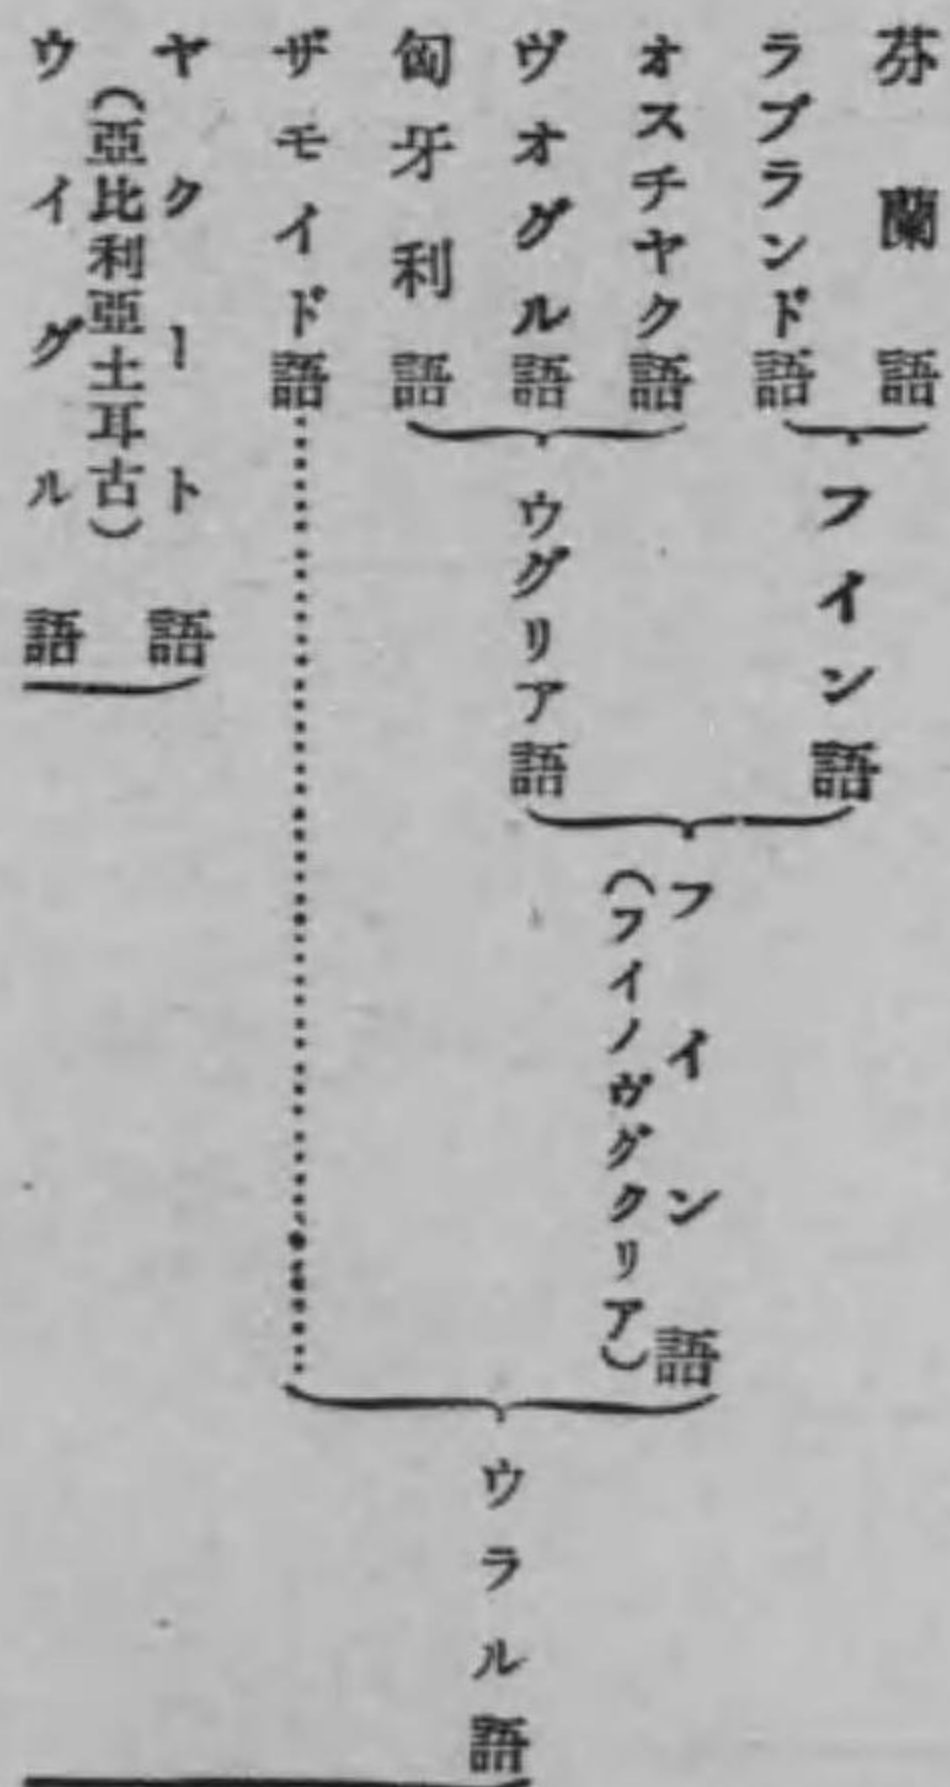 芬蘭語
ラプランド語
フイン語
オスチヤク語
ヴオグル語
匈牙利語
ウグリア語
フイン語
(フイノヴグクリア)
ザモイド語
ウラル語
ヤクート語
(亞比利亞土耳古)
ウイグル語